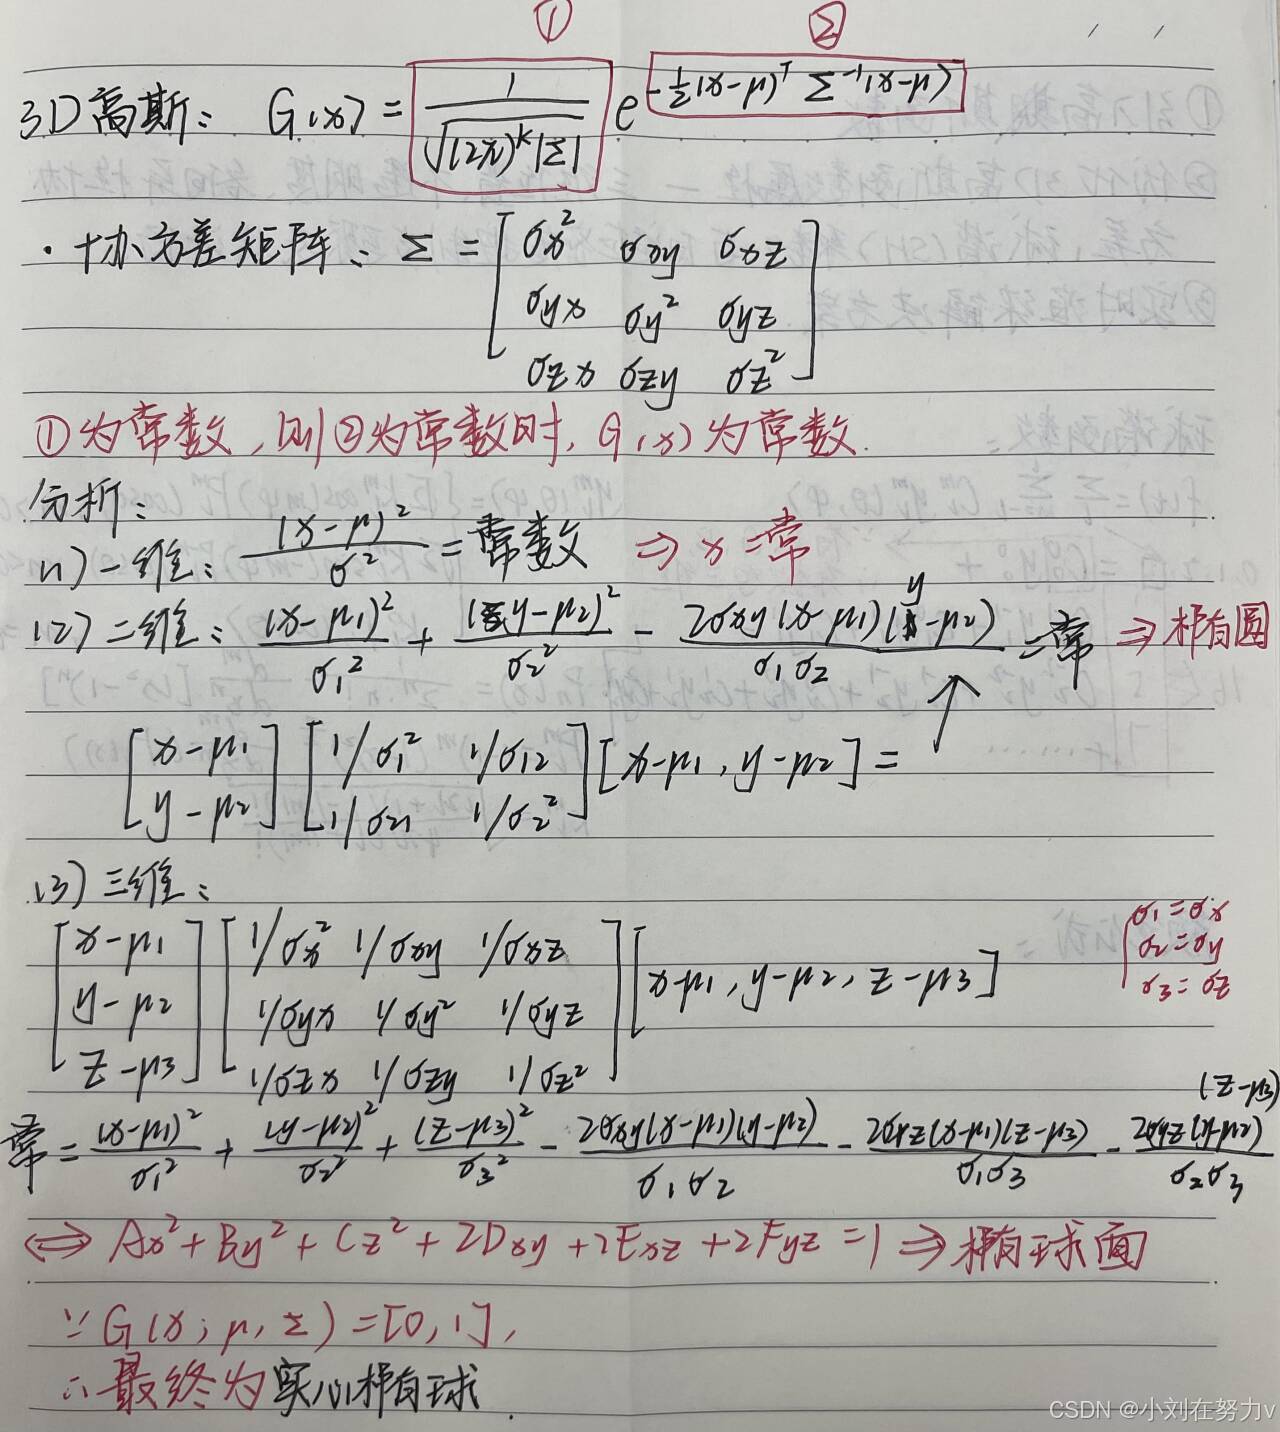 ① ②
3D高斯： G(x) = 1/√((2π)^k|Σ|) e^(-½(x-μ)^T Σ^(-1)(x-μ))
· 协方差矩阵： Σ = [σx² σxy σxz
σyx σy² σyz
σzx σzy σz²]
①为常数，则②为常数时，G(x)为常数.
分析：
(1) 一维： (x-μ)²/σ² = 常数 ⇒ x = 常
(2) 二维： (x-μ1)²/σ1² + (y-μ2)²/σ2² - 2σxy(x-μ1)(y-μ2)/σ1σ2 = 常 ⇒ 椭圆
[x-μ1 [1/σ1² 1/σ12 [x-μ1, y-μ2] = ↑
y-μ2] 1/σ21 1/σ2²]
(3) 三维：
[x-μ1 [1/σx² 1/σxy 1/σxz
y-μ2 1/σyx 1/σy² 1/σyz [x-μ1, y-μ2, z-μ3]
z-μ3] 1/σzx 1/σzy 1/σz²]
σ1=σx
σ2=σy
σ3=σz
常 = (x-μ1)²/σ1² + (y-μ2)²/σ2² + (z-μ3)²/σ3² - 2σxy(x-μ1)(y-μ2)/σ1σ2 - 2σxz(x-μ1)(z-μ3)/σ1σ3 - 2σyz(y-μ2)(z-μ3)/σ2σ3
⇔ Ax²+By²+Cz²+2Dxy+2Exz+2Fyz=1 ⇒ 椭球面
∵ G(x; μ, Σ) = [0, 1],
∴ 最终为实心椭球.
CSDN @小刘在努力v